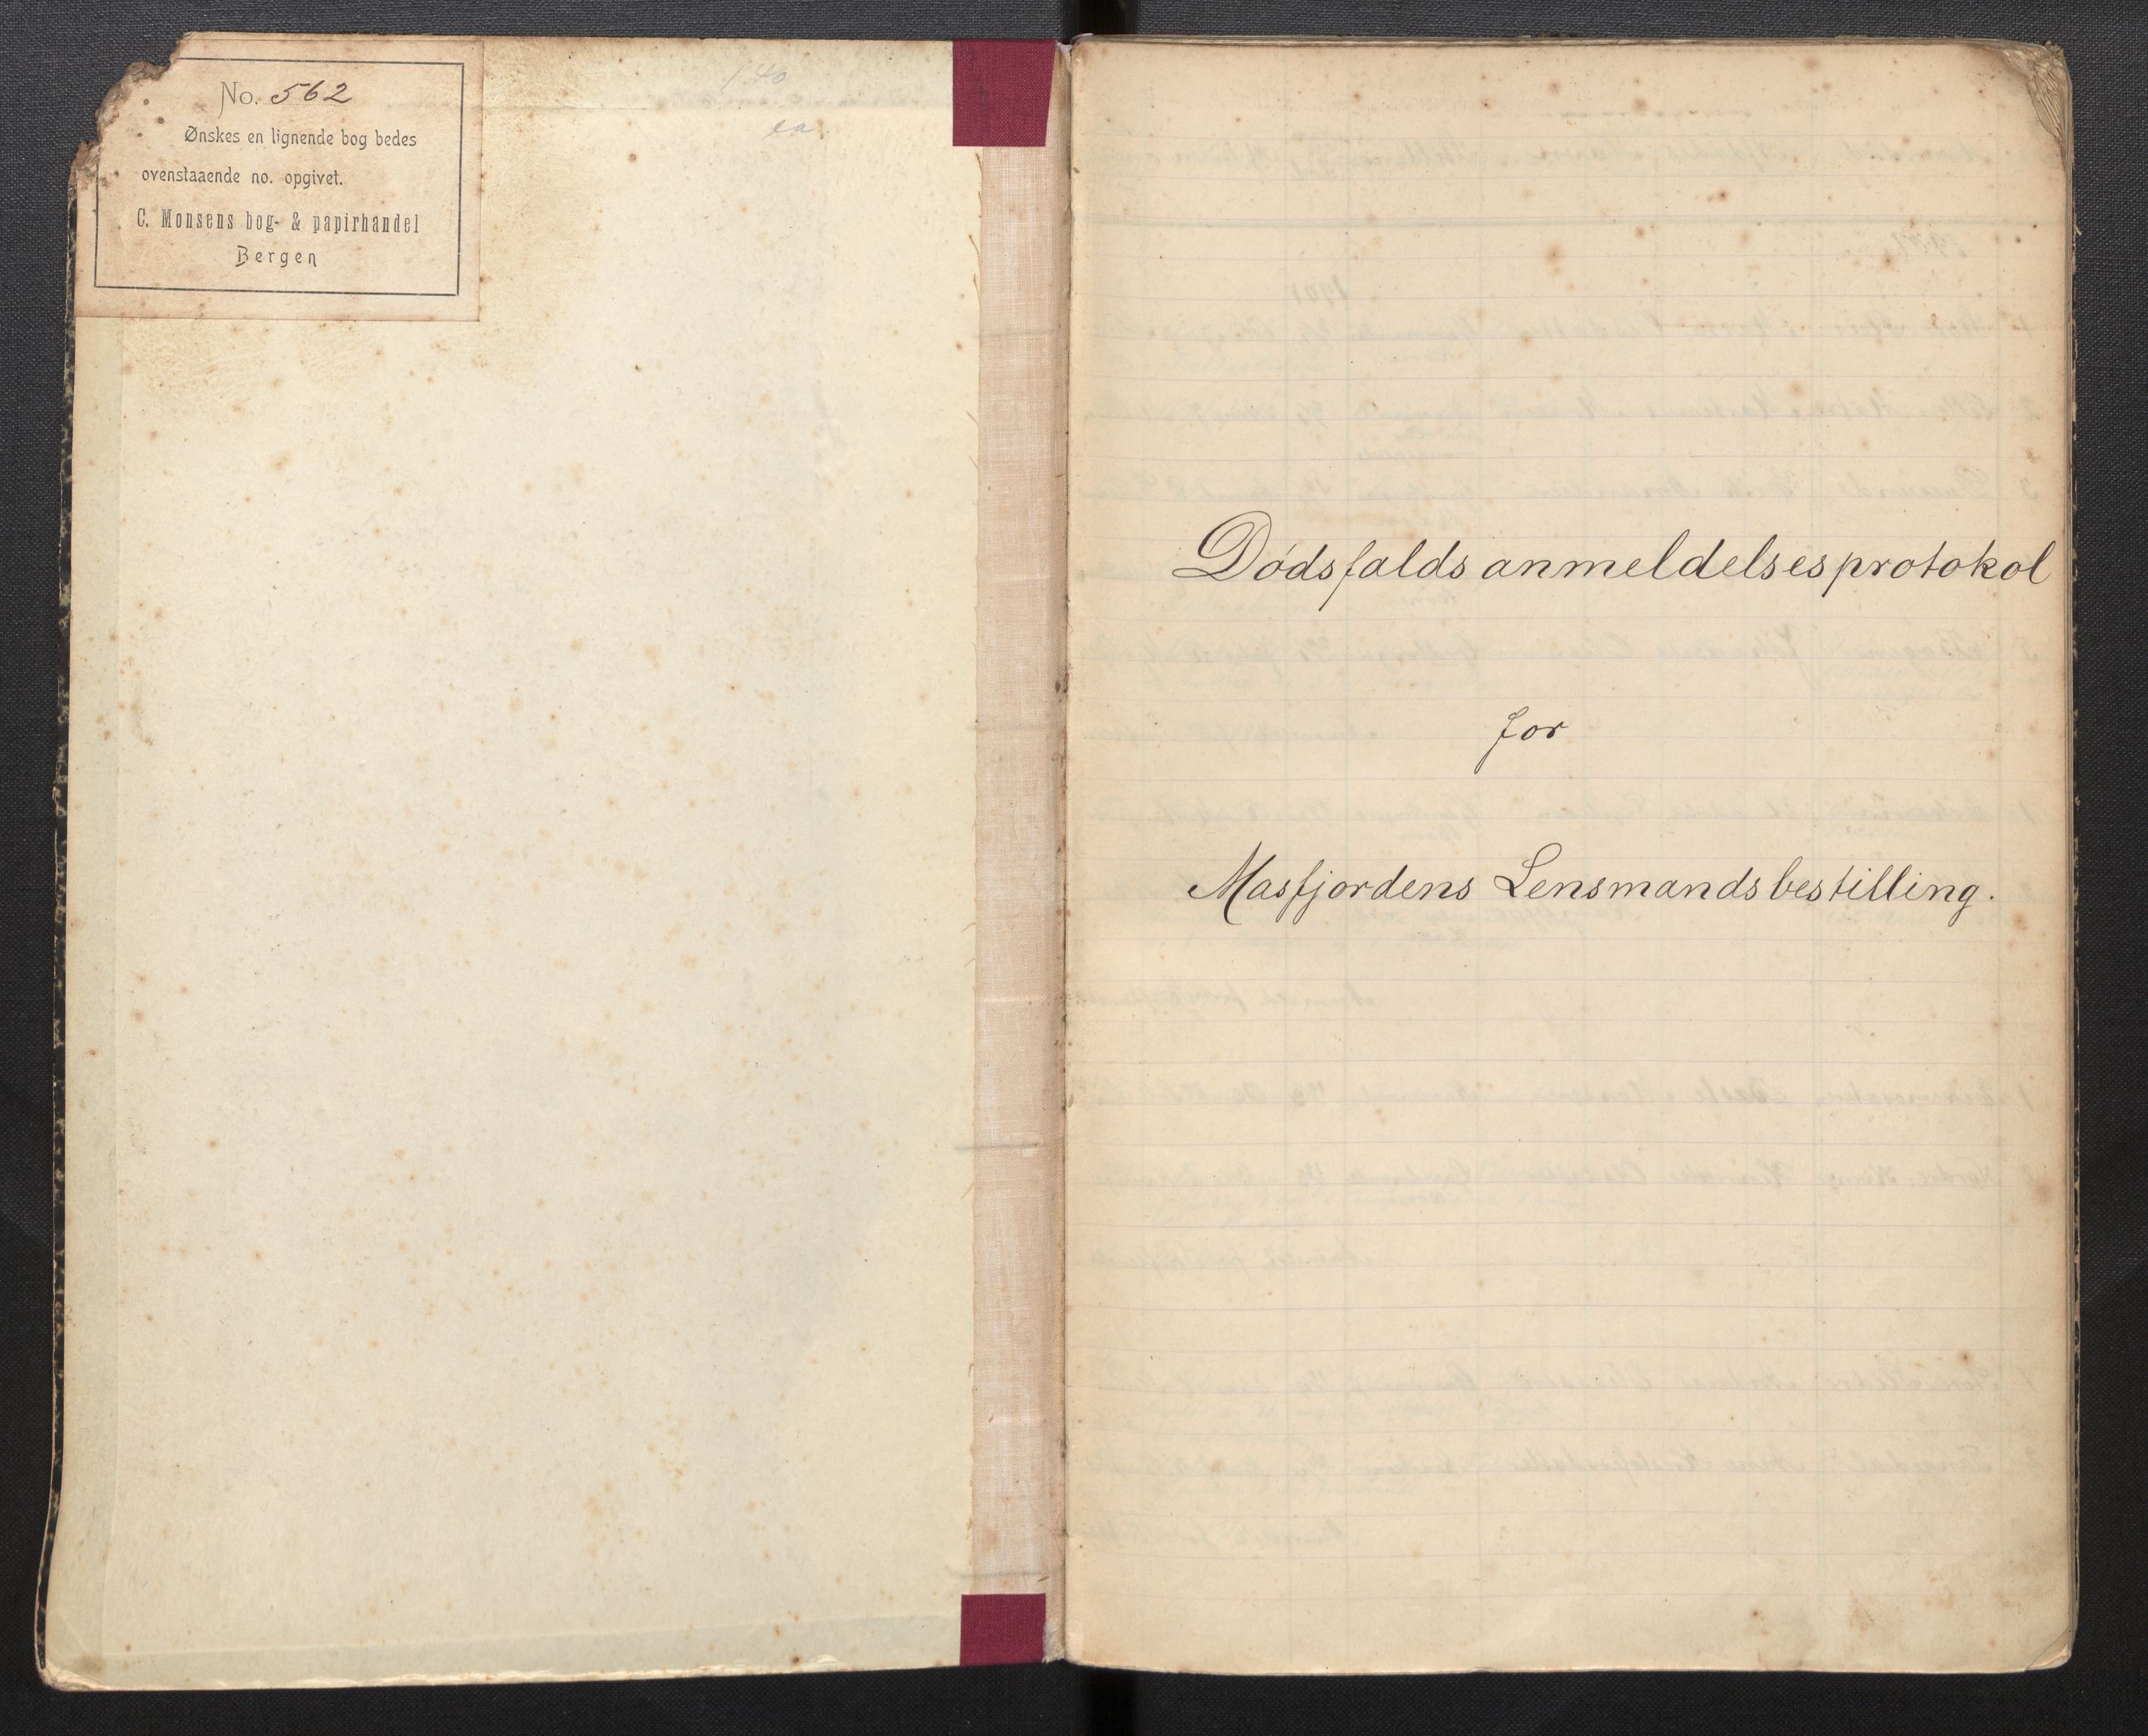 No. 562
Ønskes en lignende bog bedes
ovenstaaende no. opgivet.
C. Monsens bog- & papirhandel
Bergen
Dødsfaldsanmeldelsesprotokol
for
Masfjordens Lensmandsbestilling.